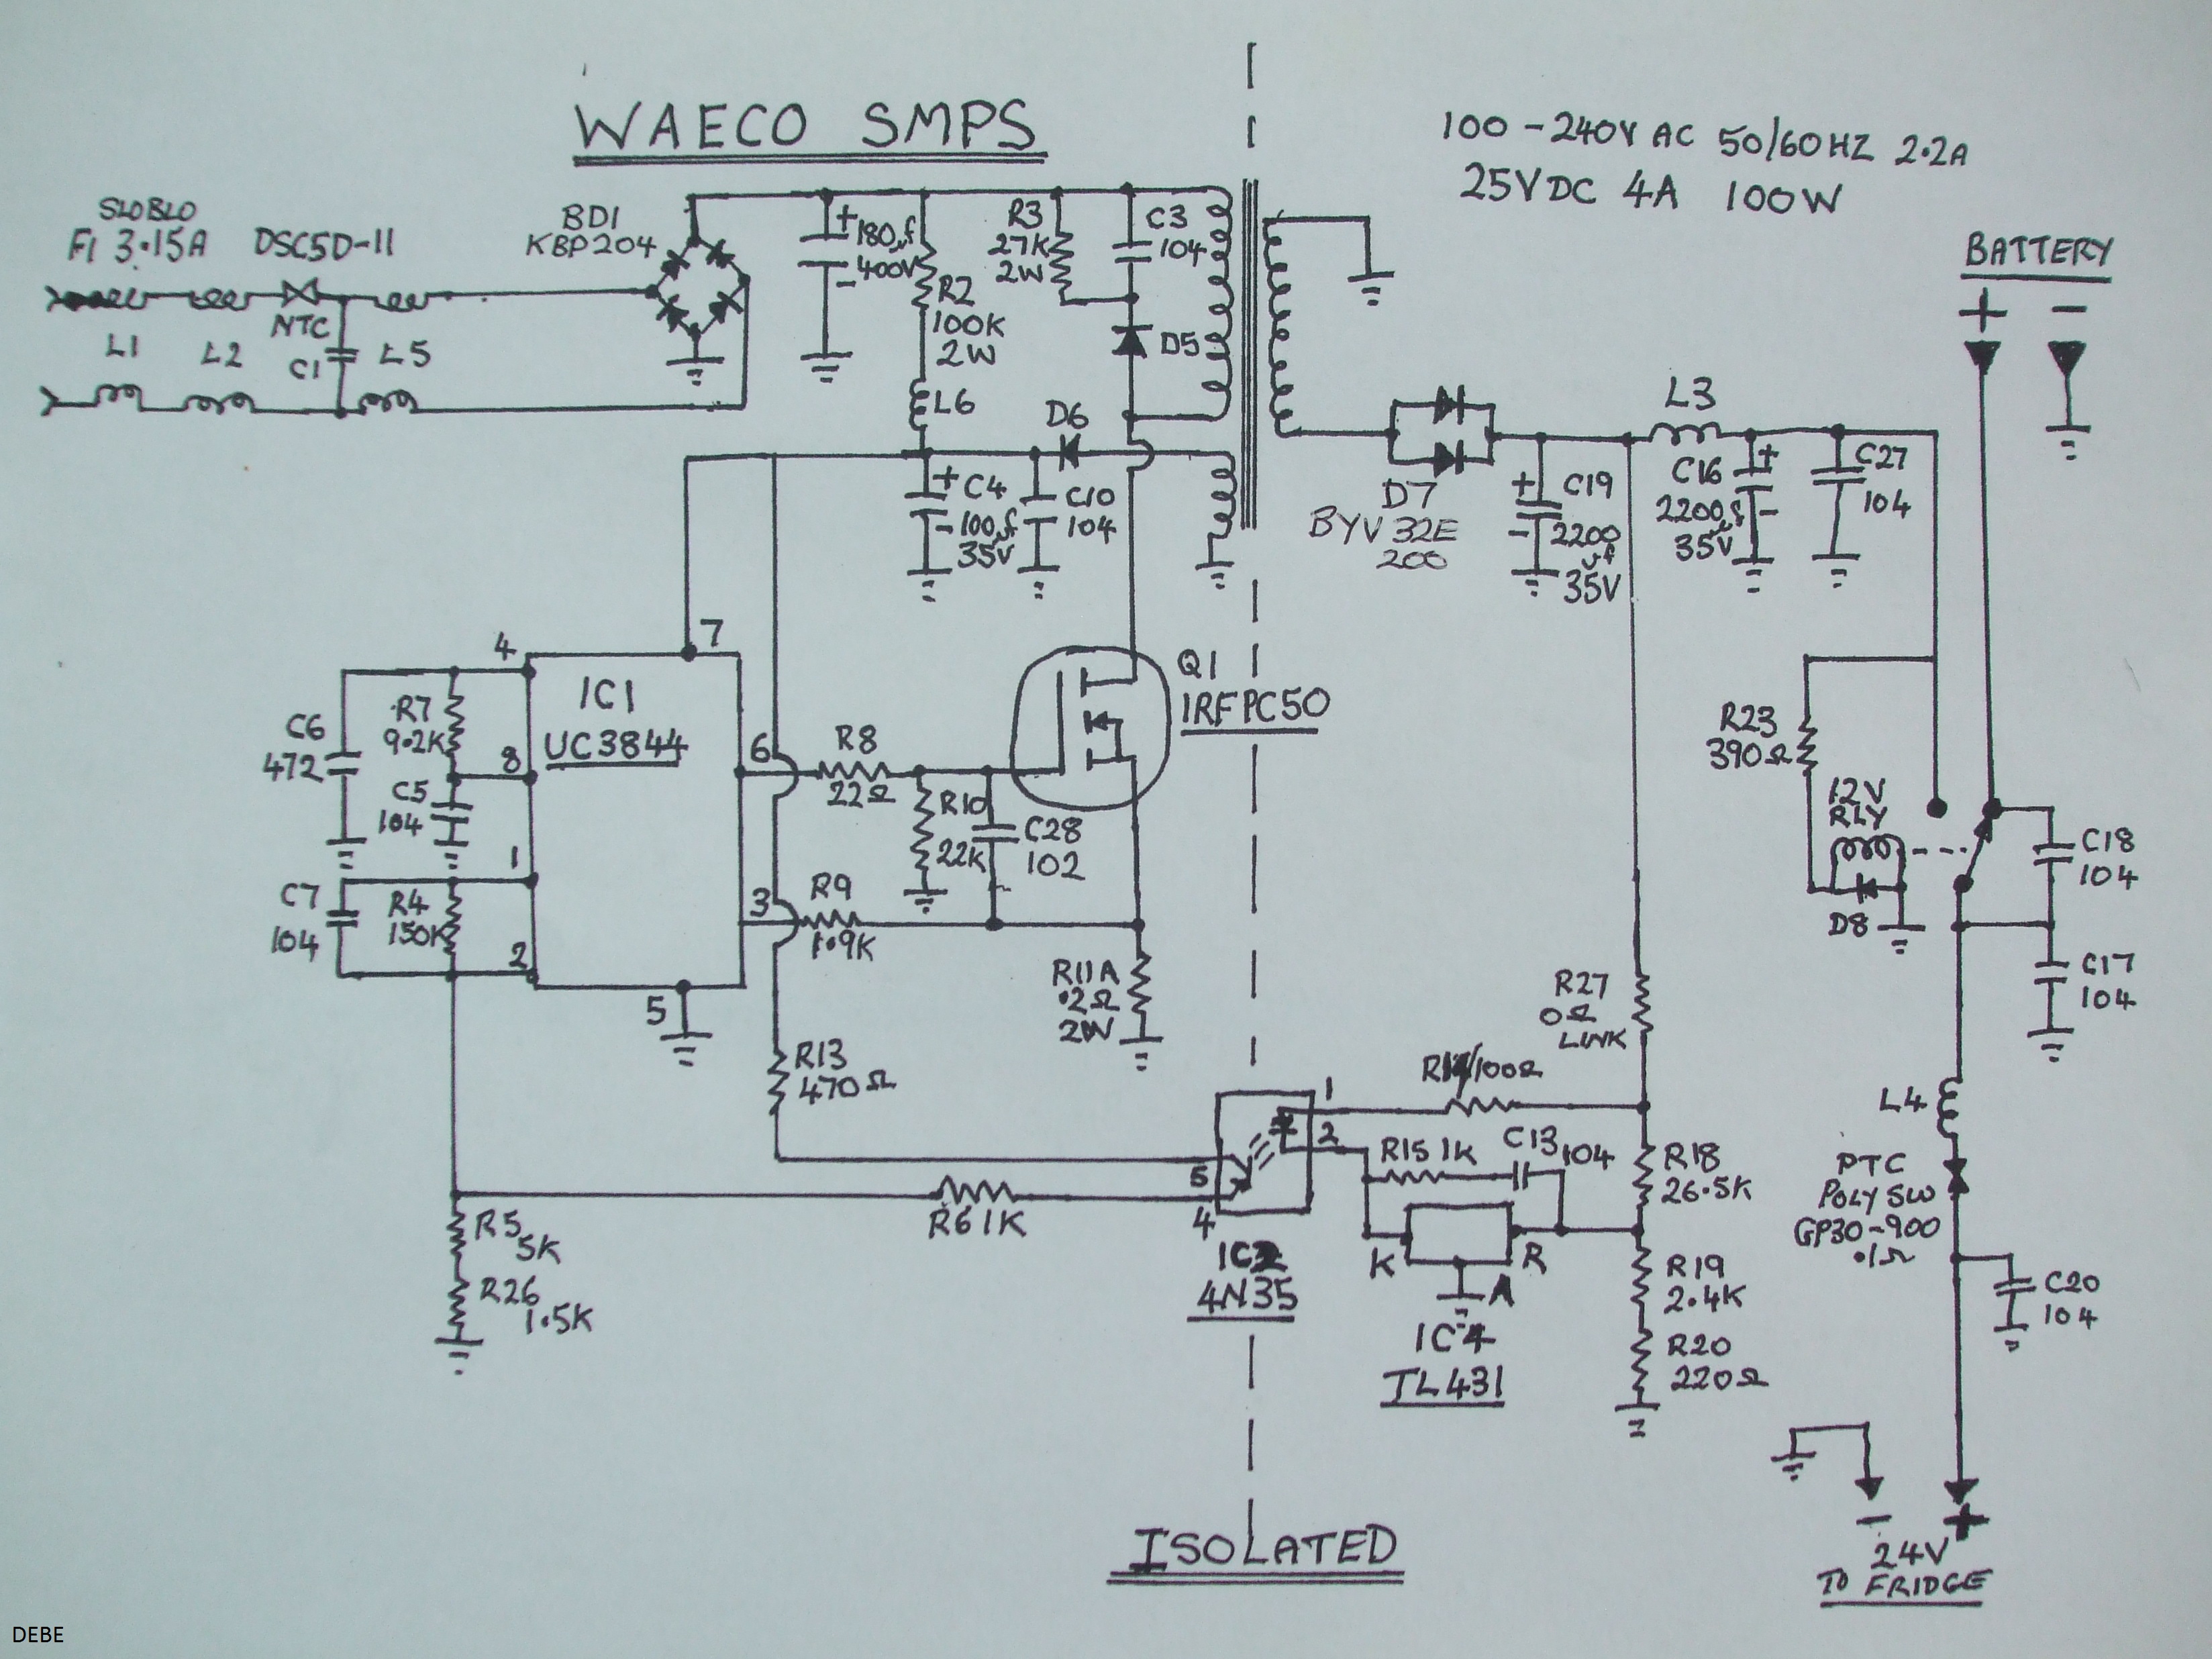 WAECO SMPS
100-240V AC 50/60HZ 2.2A
25VDC 4A 100W
SLOBLO
F1 3.15A
DSC5D-11
NTC
L1
L2
C1
L5
BD1
KBP204
+
180µf
400V
-
R2
100K
2W
L6
R3
27K
2W
C3
104
D5
D6
+ C4
- 100µf
35V
C10
104
D7
BYV32E
200
+ C19
- 2200
µf
35V
L3
C16 +
2200µf -
35V
C27
104
BATTERY
+ -
4
7
IC1
UC3844
8
6
1
3
2
5
C6
472
R7
9.2K
C5
104
C7
104
R4
150K
R8
22Ω
R10
22K
C28
102
R9
1.9K
Q1
IRFPC50
R11A
.2Ω
2W
R13
470Ω
R5
5K
R26
1.5K
R6 1K
1
2
5
4
IC2
4N35
100Ω
R15 1K
C13
104
K
R
A
IC4
TL431
R27
0Ω
LINK
R18
26.5K
R19
2.4K
R20
220Ω
R23
390Ω
12V
RLY
D8
C18
104
C17
104
L4
PTC
POLY SW
GP30-900
.1Ω
C20
104
- +
24V
TO FRIDGE
ISOLATED
DEBE